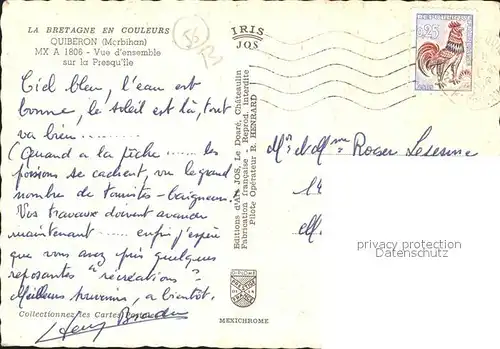 LA BRETAGNE EN COULEURS
QUIBERON (Morbihan)
MX A 1806 - Vue d'ensemble
sur la Presqu'île
Ciel bleu, l'eau est
bonne, le soleil est là, tout
va bien ..........
(Quand a la pêche ....... les
poissons se cachent, vu le grand
nombre de touristes - baigneurs
Vos travaux doivent avancer
maintenant ....... enfin j'espère
que vous avez pris quelques
reposantes "récréations".
Meilleurs souvenirs, a bientôt.
Collectionnez les Cartes
Henry
IRIS
JOS
Editions d'Art JOS, Le Doaré, Châteaulin
Fabrication française - Reprod. interdite
Pilote Opérateur R. HENRARD
MEXICHROME
0,25
Mr et Mme Roger Lesesne
14
M.
privacy protection
Datenschutz